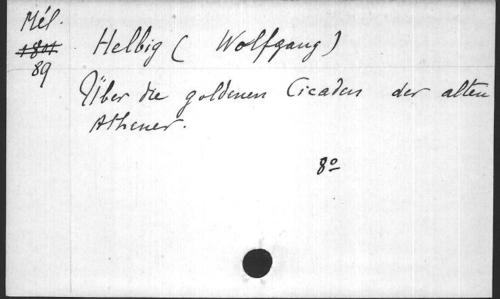 Mél.
89
Helbig ( Wolfgang )
Über die goldenen Cicaden der alten
Athener.
8º